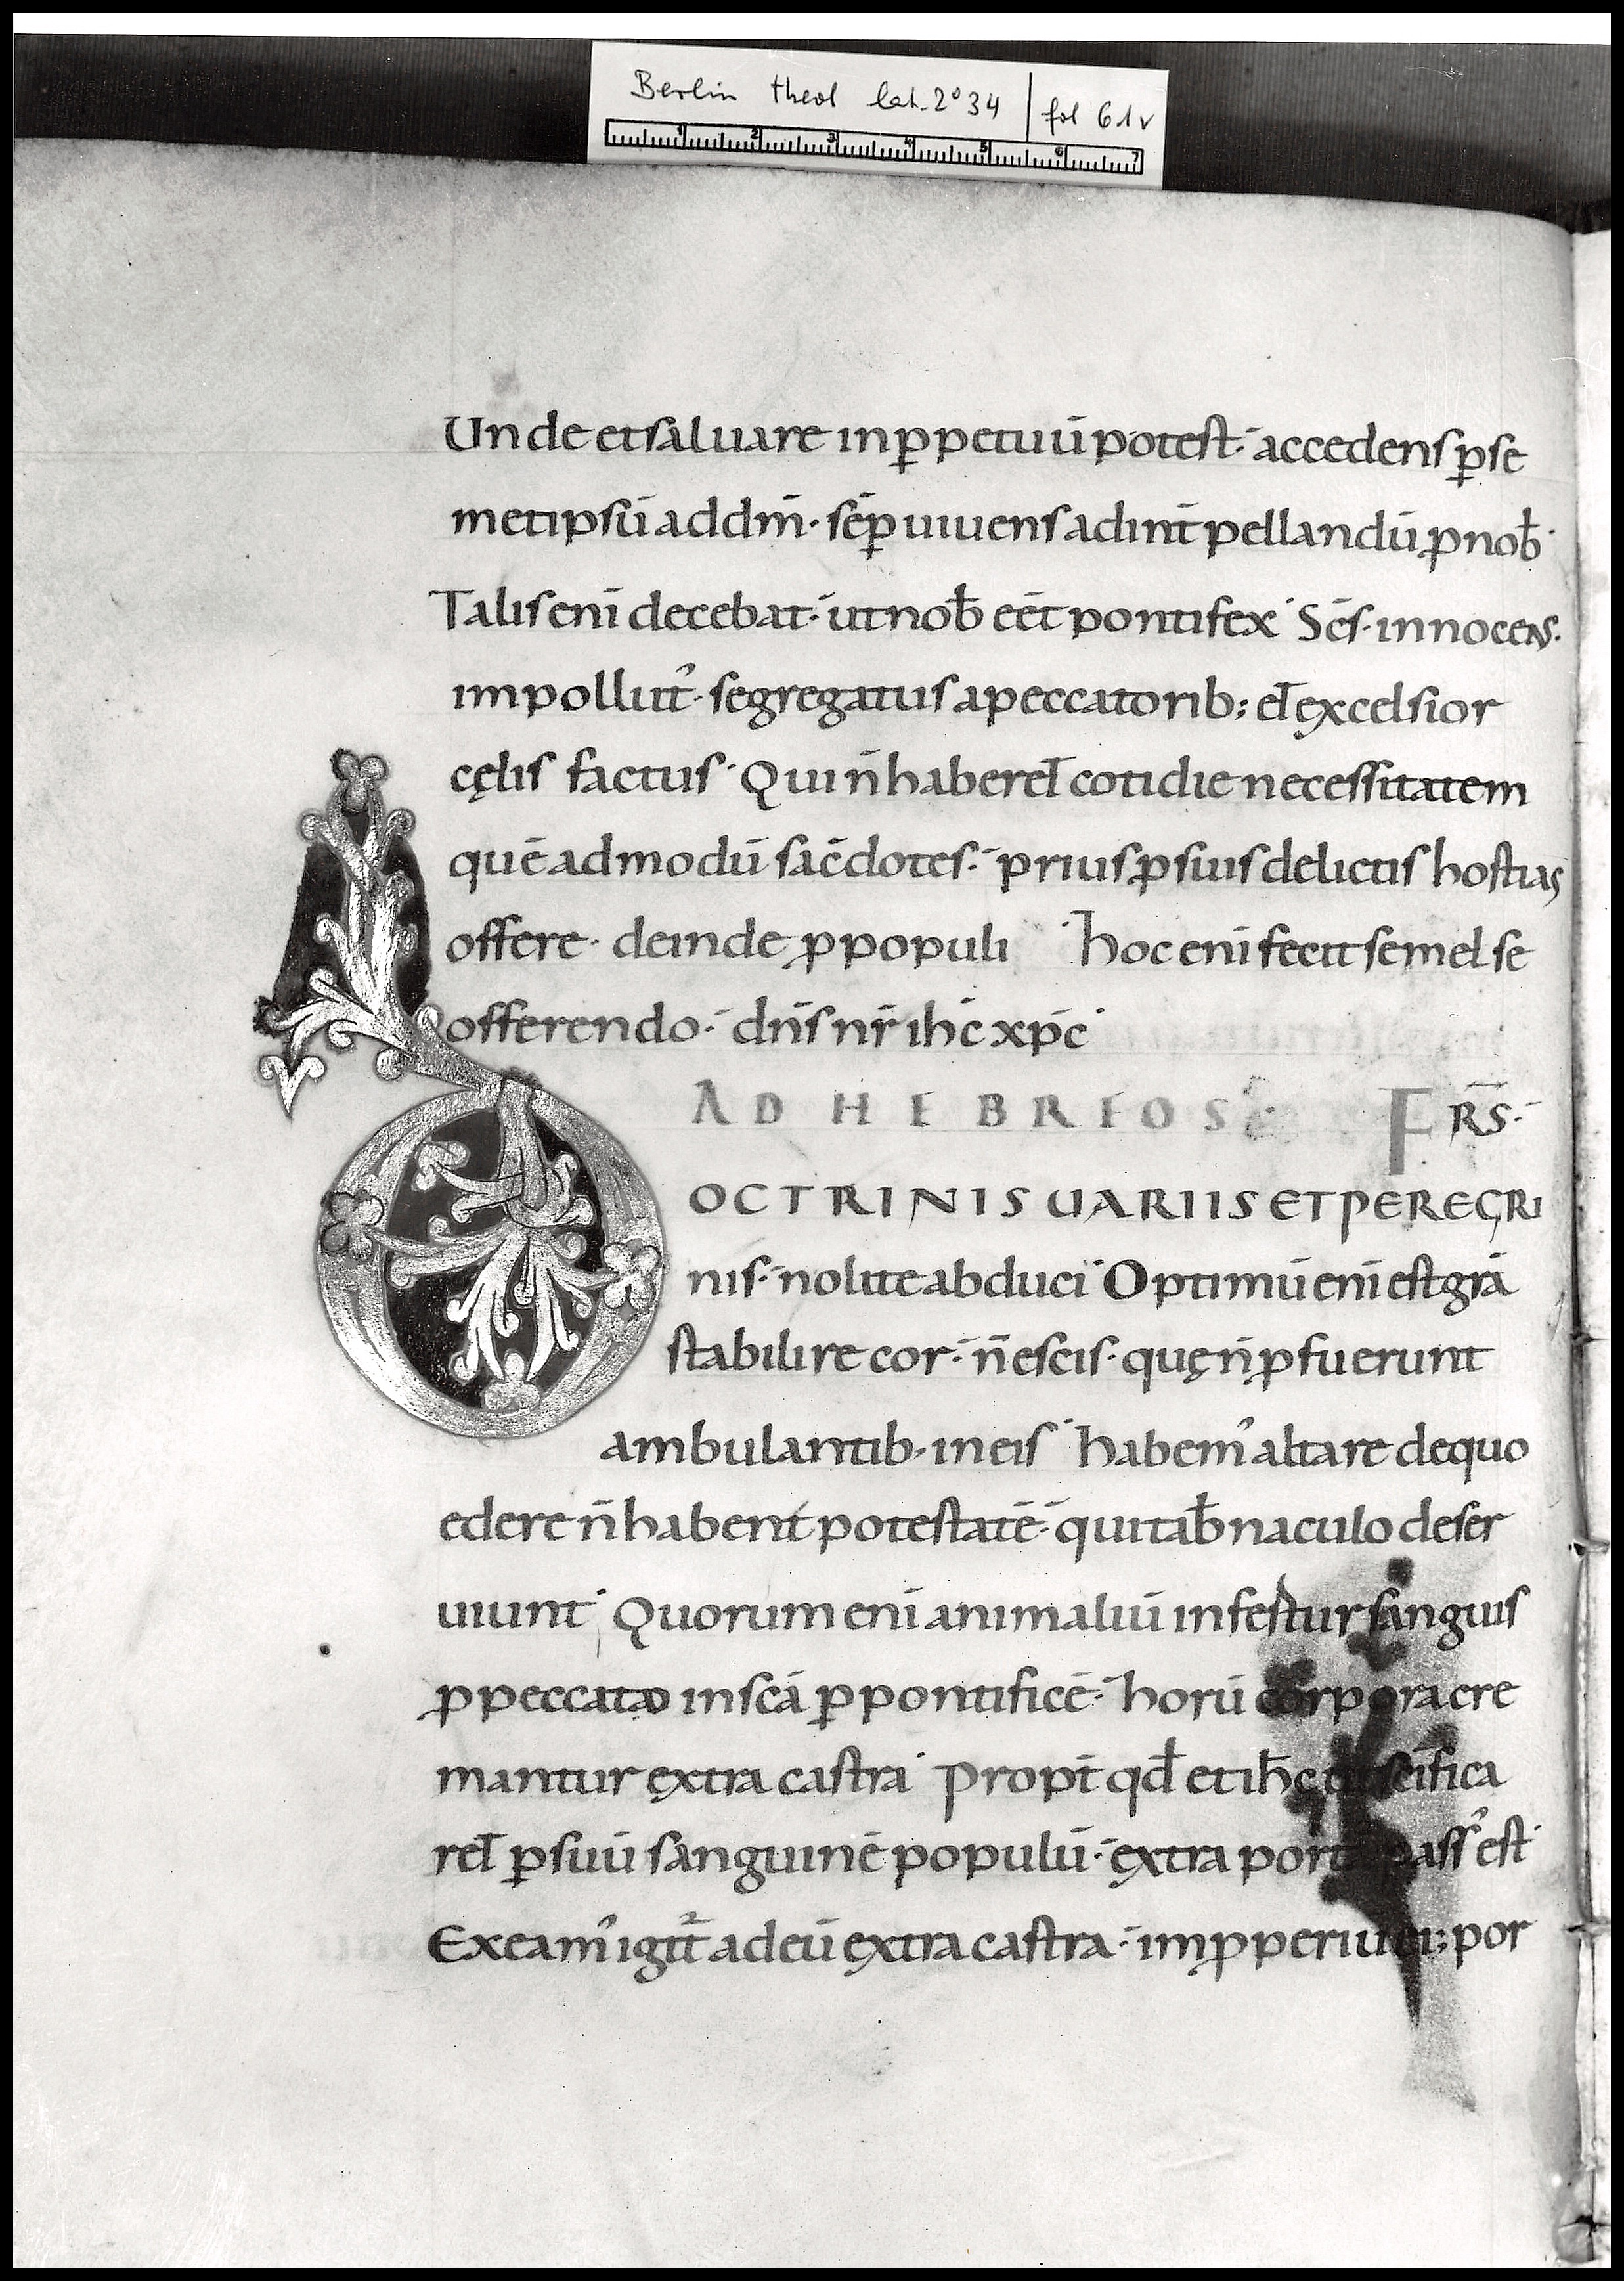 Berlin theol lat. 2° 34 | fol 61v
1 2 3 4 5 6 7
Unde et saluare inp̲petuū potest · accedens p̲ se
metipsū ad dm̄ · sēp̲ uiuens ad int̄pellandū ꝓ nob̄
Talis enī decebat · ut nob̄ eēt pontifex Sc̄s · innocens ·
impollut᾿ · segregatus a peccatorib; et̄ excelsior
cęlis factus · Qui n̄ haberet̄ cotidie necessitatem
quē ad modū sac̄dotes · prius ꝓ suis delictis hostias
offere · deinde ꝓ populi hoc enī fecit semel se
offerendo · dn̄s nr̄ ih̄c xp̄c
AD HEBREOS FRS̄ ·
D OCTRINIS UARIIS ET PEREGRI
nis · nolite abduci Optimū enī est gr̄a
stabilire cor · n̄ escis · quę n̄ ꝓfuerunt
ambulantib· in eis habem᾿ altare de quo
edere n̄ habent potestatē · qui tab̄naculo deser
uiunt Quorum enī animaliū infestur sanguis
ꝓ peccato in sc̄a ꝑ pontificē · horū corpora cre
mantur extra castra Propt̄ qd̄ et ih̄c sc̄ifica
ret̄ ꝑ suū sanguinē populū · extra port pass᾿ est
Exeam᾿ igit᷑ ad eū extra castra · imꝓperiū ei; por